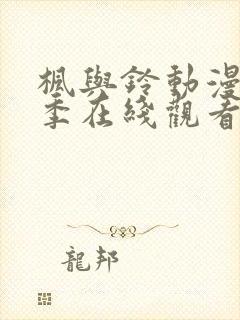 楓與鈴動漫
季在綫觀看
龍邦